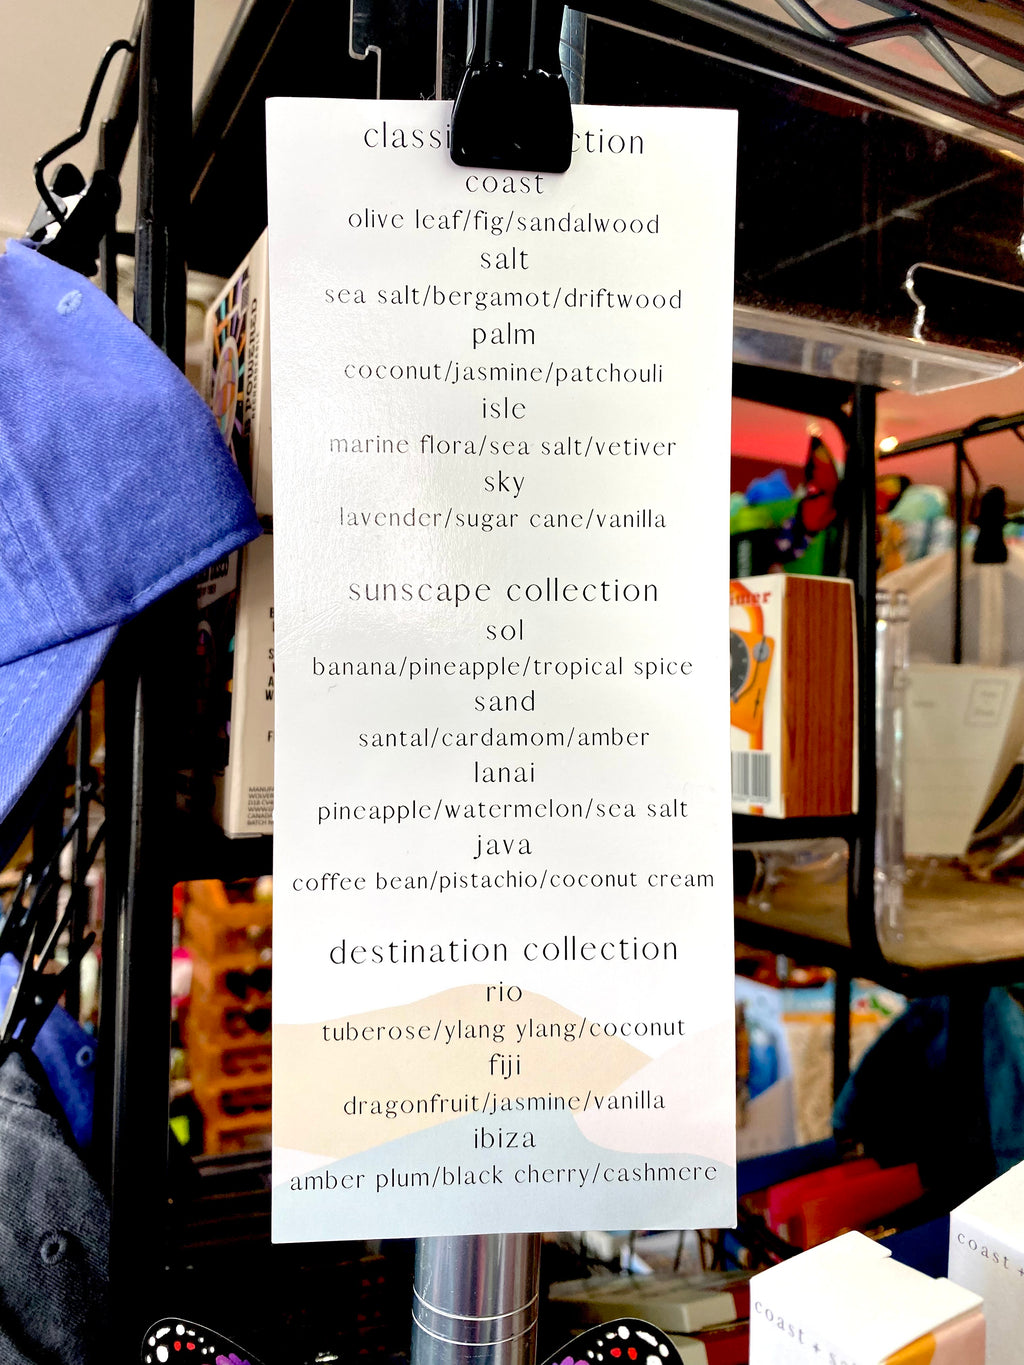 classi ction
coast
olive leaf/fig/sandalwood
salt
sea salt/bergamot/driftwood
palm
coconut/jasmine/patchouli
isle
marine flora/sea salt/vetiver
sky
lavender/sugar cane/vanilla
sunscape collection
sol
banana/pineapple/tropical spice
sand
santal/cardamom/amber
lanai
pineapple/watermelon/sea salt
java
coffee bean/pistachio/coconut cream
destination collection
rio
tuberose/ylang ylang/coconut
fiji
dragonfruit/jasmine/vanilla
ibiza
amber plum/black cherry/cashmere
coast +
coast + s